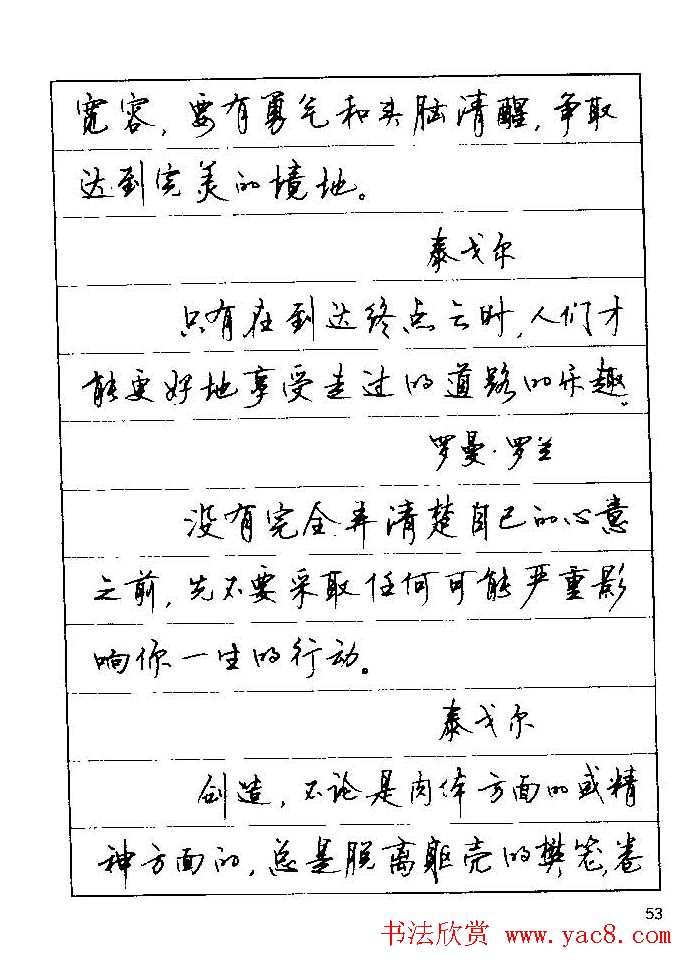 宽容，要有勇气和头脑清醒，争取
达到完美的境地。
泰戈尔
只有在到达终点之时，人们才
能更好地享受走过的道路的乐趣。
罗曼·罗兰
没有完全弄清楚自己的心意
之前，先不要采取任何可能严重影
响你一生的行动。
泰戈尔
创造，不论是肉体方面的或精
神方面的，总是脱离躯壳的樊笼，卷
53
书法欣赏 www.yac8.com